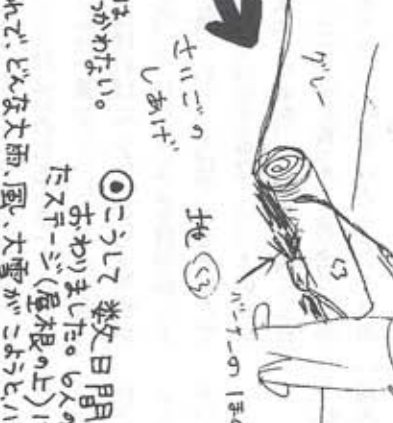 グレー
くろ
バーナーのほ
地 くろ
さいごの
しあげ
は
つかわない。
◎こうして数日間
おわりました。6人の
たステージ(屋根の上)に
れで、どんな大雨、風、大雪がこようと、ハ